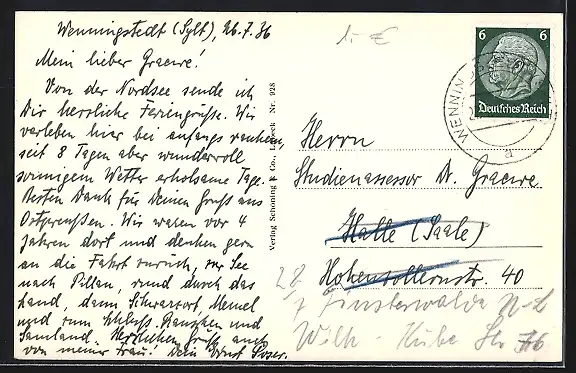 Wenningstedt (Sylt), 26.7.36
Mein lieber Graewe!
Von der Nordsee sende ich
Dir herzliche Feriengrüße. Wir
verleben hier bei anfangs rauhem,
seit 8 Tagen aber wundervoll
sonnigem Wetter erholsame Tage.
Besten Dank für Deinen Gruß aus
Ostpreußen. Wir waren vor 4
Jahren dort und denken gern
an die Fahrt zurück, zur See
nach Pillau, rund durch das
Land, dann Schwarzort, Memel
und zum Schluß Rauschen und
Samland. Herzlichen Gruß auch
von meiner Frau! Dein Ernst
Verlag Schöning & Co., Lübeck Nr. 928
1.- €
6 6
Deutsches Reich
WENNIN
a
Herrn
Studienassessor Dr. Graewe
Halle (Saale)
Hohenzollernstr. 40
28/7 Finsterwalde N-L
Wilh-